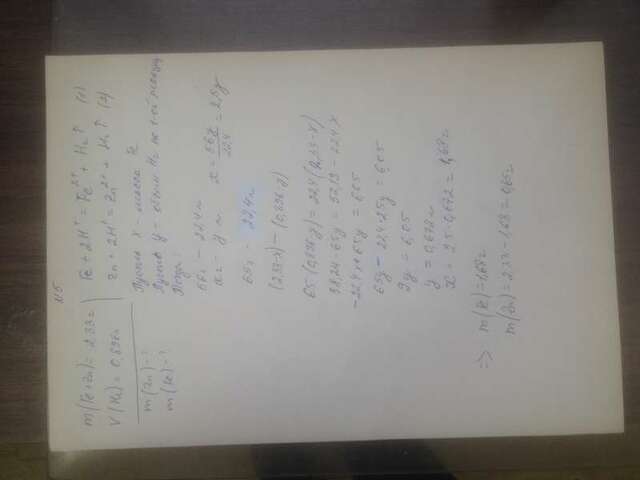 №5
m(Fe+Zn)=2,33г
V(H₂) = 0,896л
m(Zn)-?
m(Fe)-?
Fe + 2H⁺ = Fe²⁺ + H₂↑ (1)
Zn + 2H⁺ = Zn²⁺ + H₂↑ (2)
Пусть x - масса Fe
Пусть y = объем H₂ по 1-ой реакции
Тогда:
56г - 22,4л
x г - y л x = 56y/22,4 = 2,5y
65г - 22,4л
(2,33-x) - (0,896-y)
65·(0,896-y) = 22,4(2,33-x)
58,24-65y = 52,19-22,4x
-22,4x+65y = 6,05
65y - 22,4·2,5y = 6,05
9y = 6,05
y = 0,672л
x = 2,5·0,672 = 1,68г
=> m(Fe)=1,68г
m(Zn)=2,33-1,68=0,65г